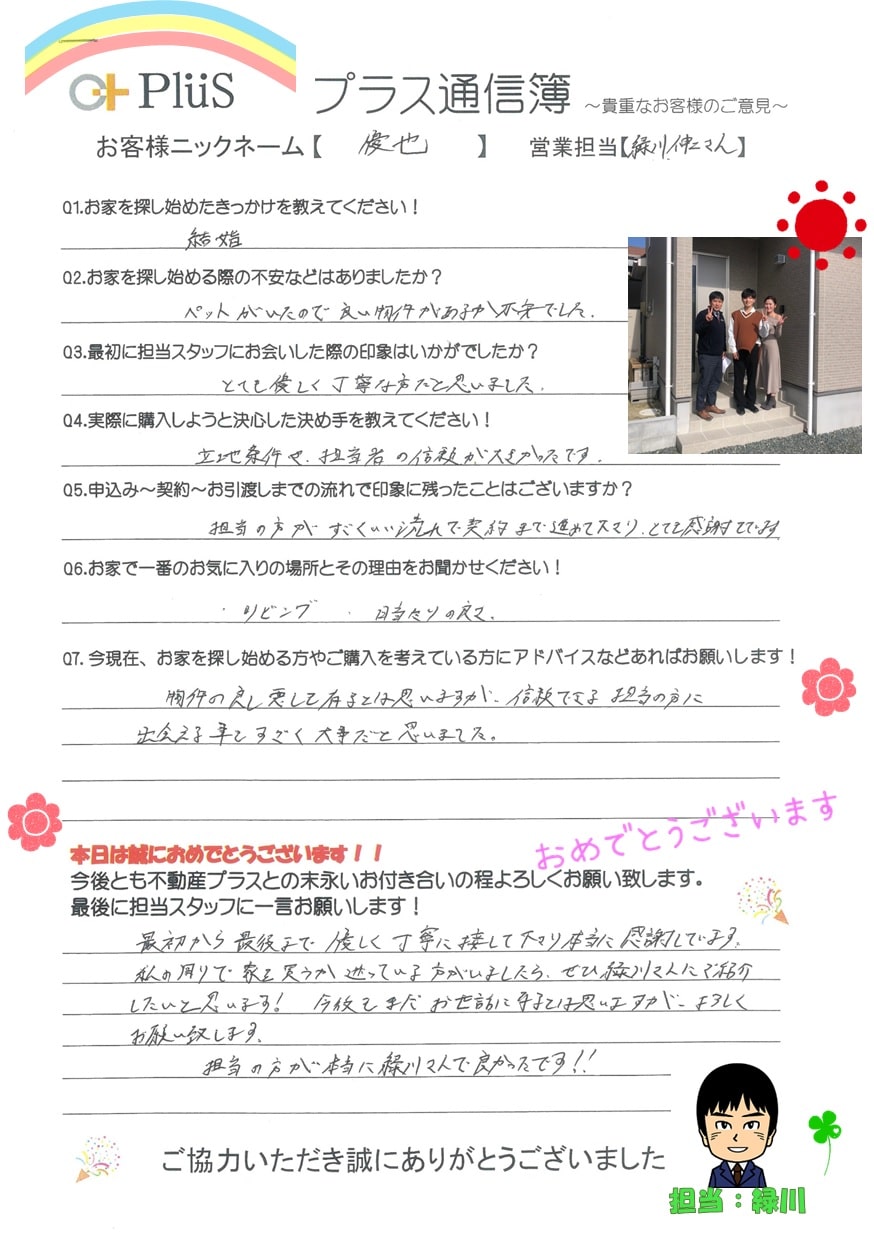 PlüS プラス通信簿 ～貴重なお客様のご意見～
お客様ニックネーム【 優也 】 営業担当【緑川 伸二さん】
Q1.お家を探し始めたきっかけを教えてください！
結婚
Q2.お家を探し始める際の不安などはありましたか？
ペットがいたので良い物件があるか不安でした.
Q3.最初に担当スタッフにお会いした際の印象はいかがでしたか？
とても優しく丁寧な方だと思いました.
Q4.実際に購入しようと決心した決め手を教えてください！
立地条件や、担当者の信頼が大きかったです.
Q5.申込み～契約～お引渡しまでの流れで印象に残ったことはございますか？
担当の方がすごくいい流れで契約まで進めて下さり、とても感謝してます
Q6.お家で一番のお気に入りの場所とその理由をお聞かせください！
・リビング ・日当たりの良さ.
Q7. 今現在、お家を探し始める方やご購入を考えている方にアドバイスなどあればお願いします！
物件の良し悪しも有るとは思いますが、信頼できる担当の方に
出会える事もすごく大事だと思いました。
おめでとうございます
本日は誠におめでとうございます！！
今後とも不動産プラスとの末永いお付き合いの程よろしくお願い致します。
最後に担当スタッフに一言お願いします！
最初から最後まで優しく丁寧に接して下さり本当に感謝しています.
私の周りで家を買うか迷っている方がいましたら、ぜひ緑川さんにご紹介
したいと思います！ 今後もまだお世話になるとは思いますが、よろしく
お願い致します.
担当の方が本当に緑川さんで良かったです!!
ご協力いただき誠にありがとうございました
担当：緑川